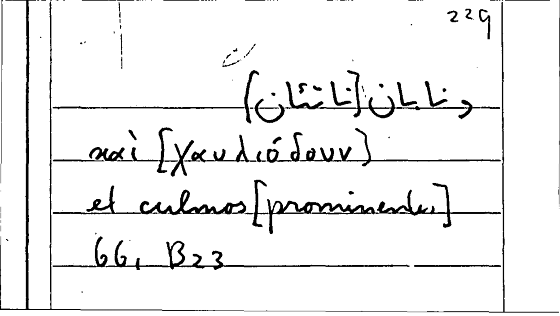 229
و نابان [ناتئان]
καὶ [χαυλιόδουν]
et culmos [prominentes]
66, B23